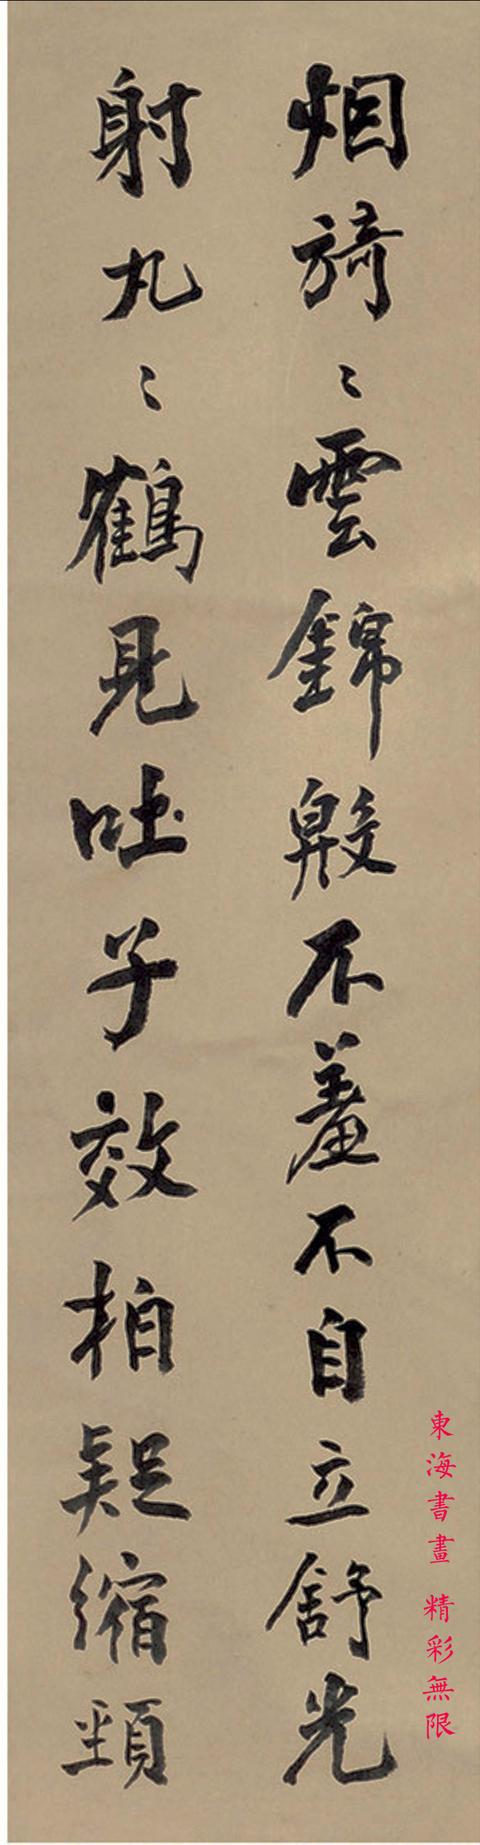 烟旖〻雲錦殷不羞不自立舒光
射丸〻鶴見吐子效柏疑縮頸
東海書畫 精彩無限